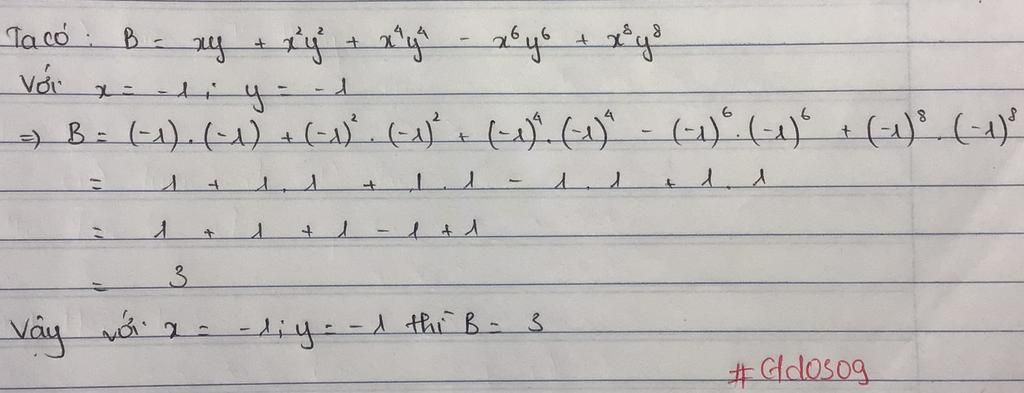 Ta có : B = xy + x²y² + x⁴y⁴ - x⁶y⁶ + x⁸y⁸
Với x = -1 ; y = -1
⇒ B = (-1).(-1) + (-1)².(-1)² + (-1)⁴.(-1)⁴ - (-1)⁶.(-1)⁶ + (-1)⁸.(-1)⁸
= 1 + 1.1 + 1.1 - 1.1 + 1.1
= 1 + 1 + 1 - 1 + 1
= 3
Vậy với x = -1 ; y = -1 thì B = 3